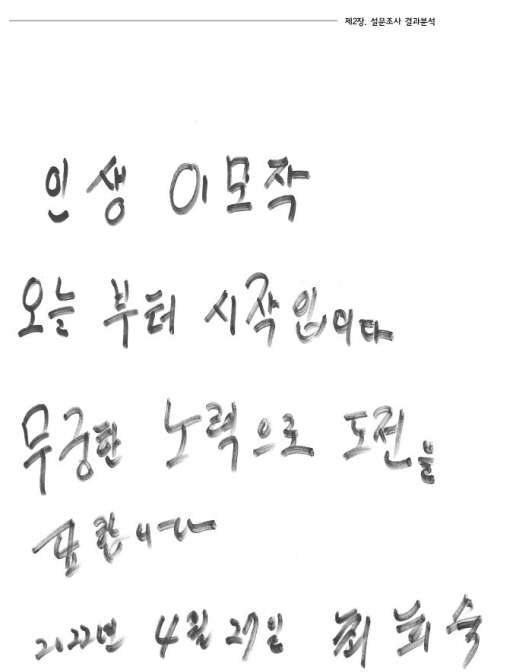 제2장. 설문조사 결과분석
인생 이모작
오늘 부터 시작입니다
무궁한 노력으로 도전을
합니다
2022년 4월 27일 최희숙